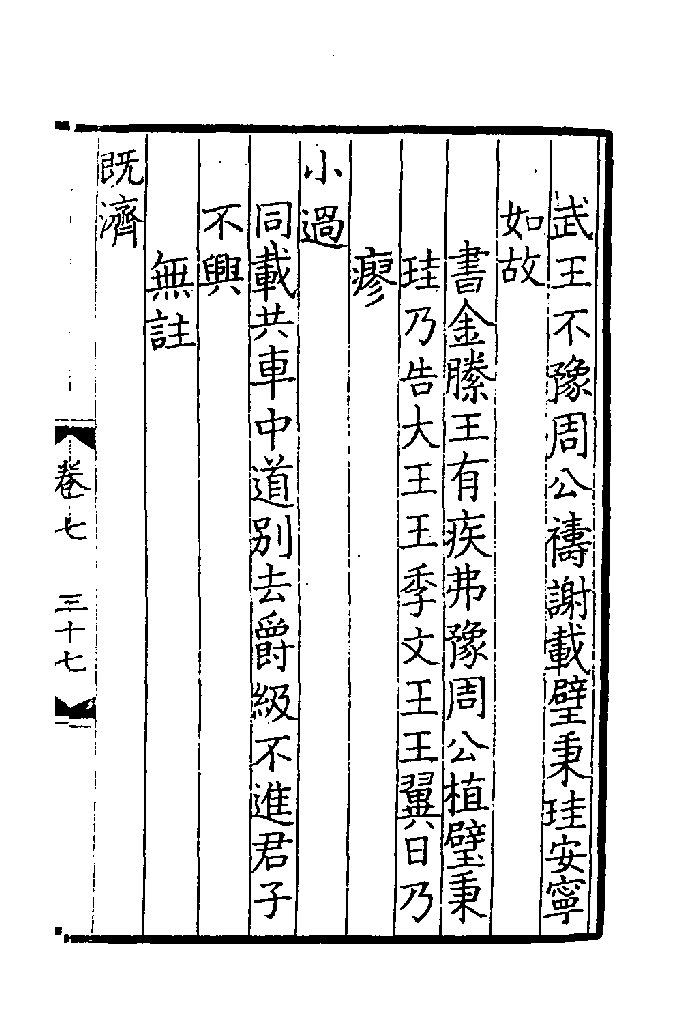 武王不豫周公禱謝載璧秉珪安寧
如故
書金縢王有疾弗豫周公植璧秉
珪乃告大王王季文王王翼日乃
瘳
小過
同載共車中道別去爵級不進君子
不興
無註
既濟
卷七 三十七